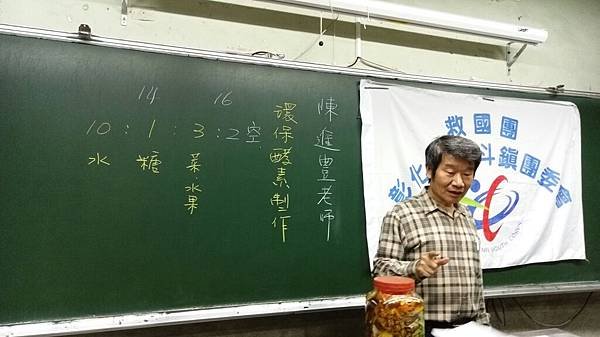 14 16
10 : 1 : 3 : 2空
水
糖
菜水果
環保酵素制作
陳進豊老師
救國團
彰化 斗鎮團委會
YOUTH